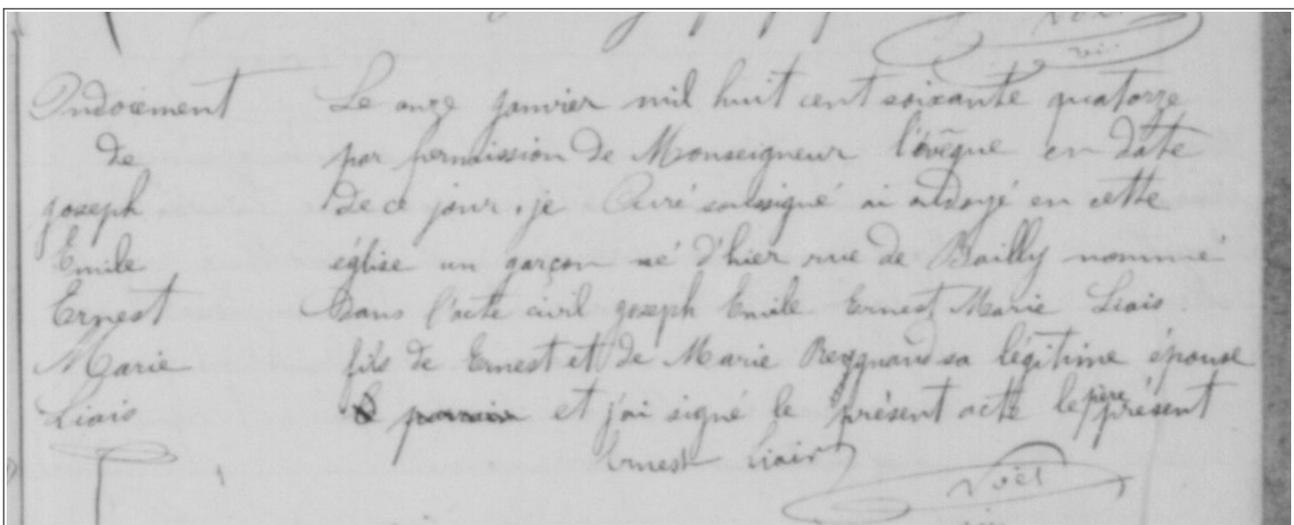 Ondoiement
de
Joseph
Emile
Ernest
Marie
Liais
Le onze janvier mil huit cent soixante quatorze
par permission de Monseigneur l'évêque en date
de ce jour, je Curé soussigné ai ondoyé en cette
église un garçon né d'hier rue de Bailly nommé
dans l'acte civil joseph Emile Ernest Marie Liais
fils de Ernest et de Marie sa légitime épouse
et j'ai signé le présent acte le père présent
Ernest Liais
Noël